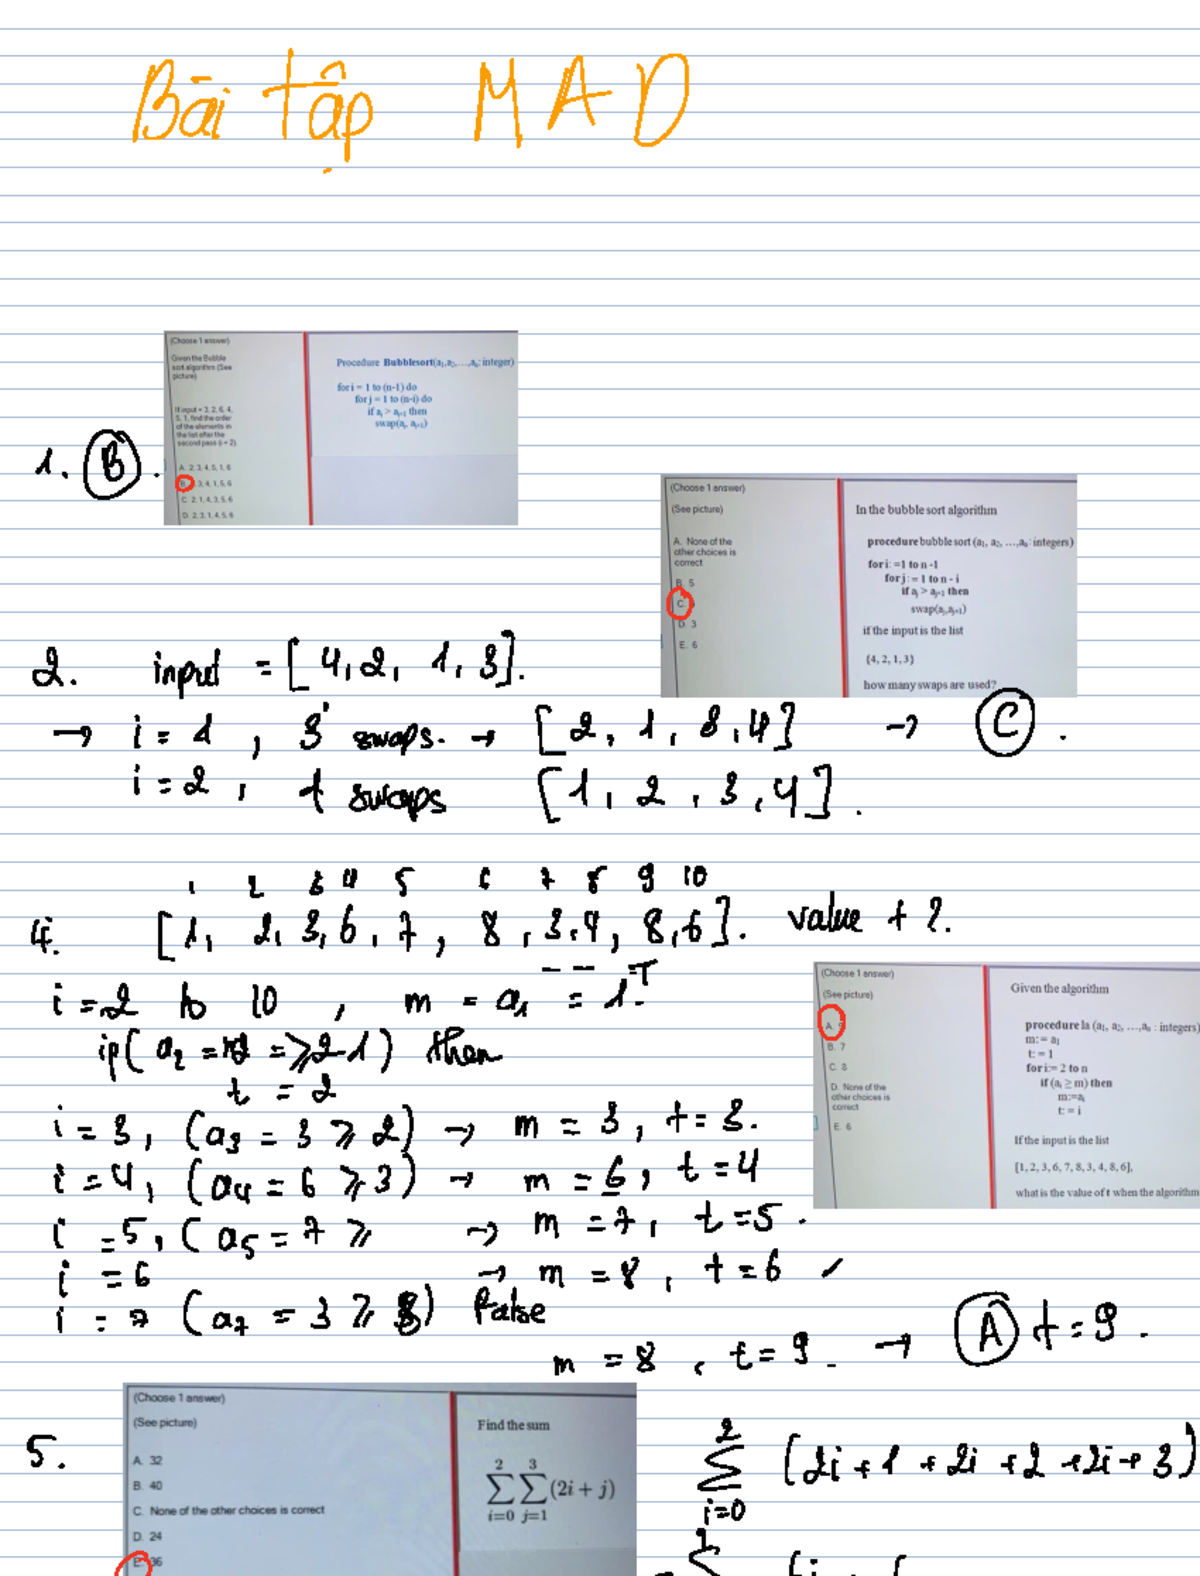 Bài tập MAD
(Choose 1 answer)
Given the Bubble
sort algorithm (See
picture)
If input = 3, 2, 6, 4,
5, 1, find the order
of the elements in
the list after the
second pass (i = 2)
A. 2,3,4,5,1,6
3,4,1,5,6
C. 2,1,4,3,5,6
D. 2,3,1,4,5,6
Procedure Bubblesort(a₁,a₂,...,aₙ: integer)
for i = 1 to (n-1) do
for j = 1 to (n-i) do
if aⱼ > aⱼ₊₁ then
swap(aⱼ, aⱼ₊₁)
1. B.
(Choose 1 answer)
(See picture)
A. None of the
other choices is
correct
B. 5
C.
D. 3
E. 6
In the bubble sort algorithm
procedure bubble sort (a₁, a₂, ...,aₙ: integers)
for i: =1 to n -1
for j: = 1 to n - i
if aⱼ > aⱼ₊₁ then
swap(aⱼ,aⱼ₊₁)
if the input is the list
{4, 2, 1, 3}
how many swaps are used?
2. input = [4,2, 1, 3].
→ i = 1, 3 swaps. → [2, 1, 3, 4] → C.
i = 2, 1 swaps [1, 2, 3, 4].
1 2 3 4 5 6 7 8 9 10
4. [1, 2, 3, 6, 7, 8, 3, 4, 8, 6]. value t ?
i = 2 to 10, m = a₁ = 1
if( a₂ = 2 => 2-1) then
t = 2
i = 3, (a₃ = 3 ⩾ 2) → m = 3, t = 3.
i = 4, (a₄ = 6 ⩾ 3) → m = 6, t = 4
i = 5, ( a₅ = 7 ⩾ → m = 7, t = 5.
i = 6 → m = 8, t = 6
i = 7 (a₇ = 3 ⩾ 8) false
m = 8, t = 9. → A t = 9.
(Choose 1 answer)
(See picture)
A.
B. 7
C. 8
D. None of the
other choices is
correct
E. 6
Given the algorithm
procedure la (a₁, a₂, ...,aₙ : integers)
m:= a₁
t: = 1
for i:= 2 to n
if (aᵢ ≥ m) then
m:=aᵢ
t: = i
If the input is the list
[1, 2, 3, 6, 7, 8, 3, 4, 8, 6],
what is the value of t when the algorithm
5.
(Choose 1 answer)
(See picture)
A. 32
B. 40
C. None of the other choices is correct
D. 24
E. 36
Find the sum
2 3
∑ ∑ (2i + j)
i=0 j=1
2
∑ (2i + 1 + 2i + 2 + 2i + 3)
i=0